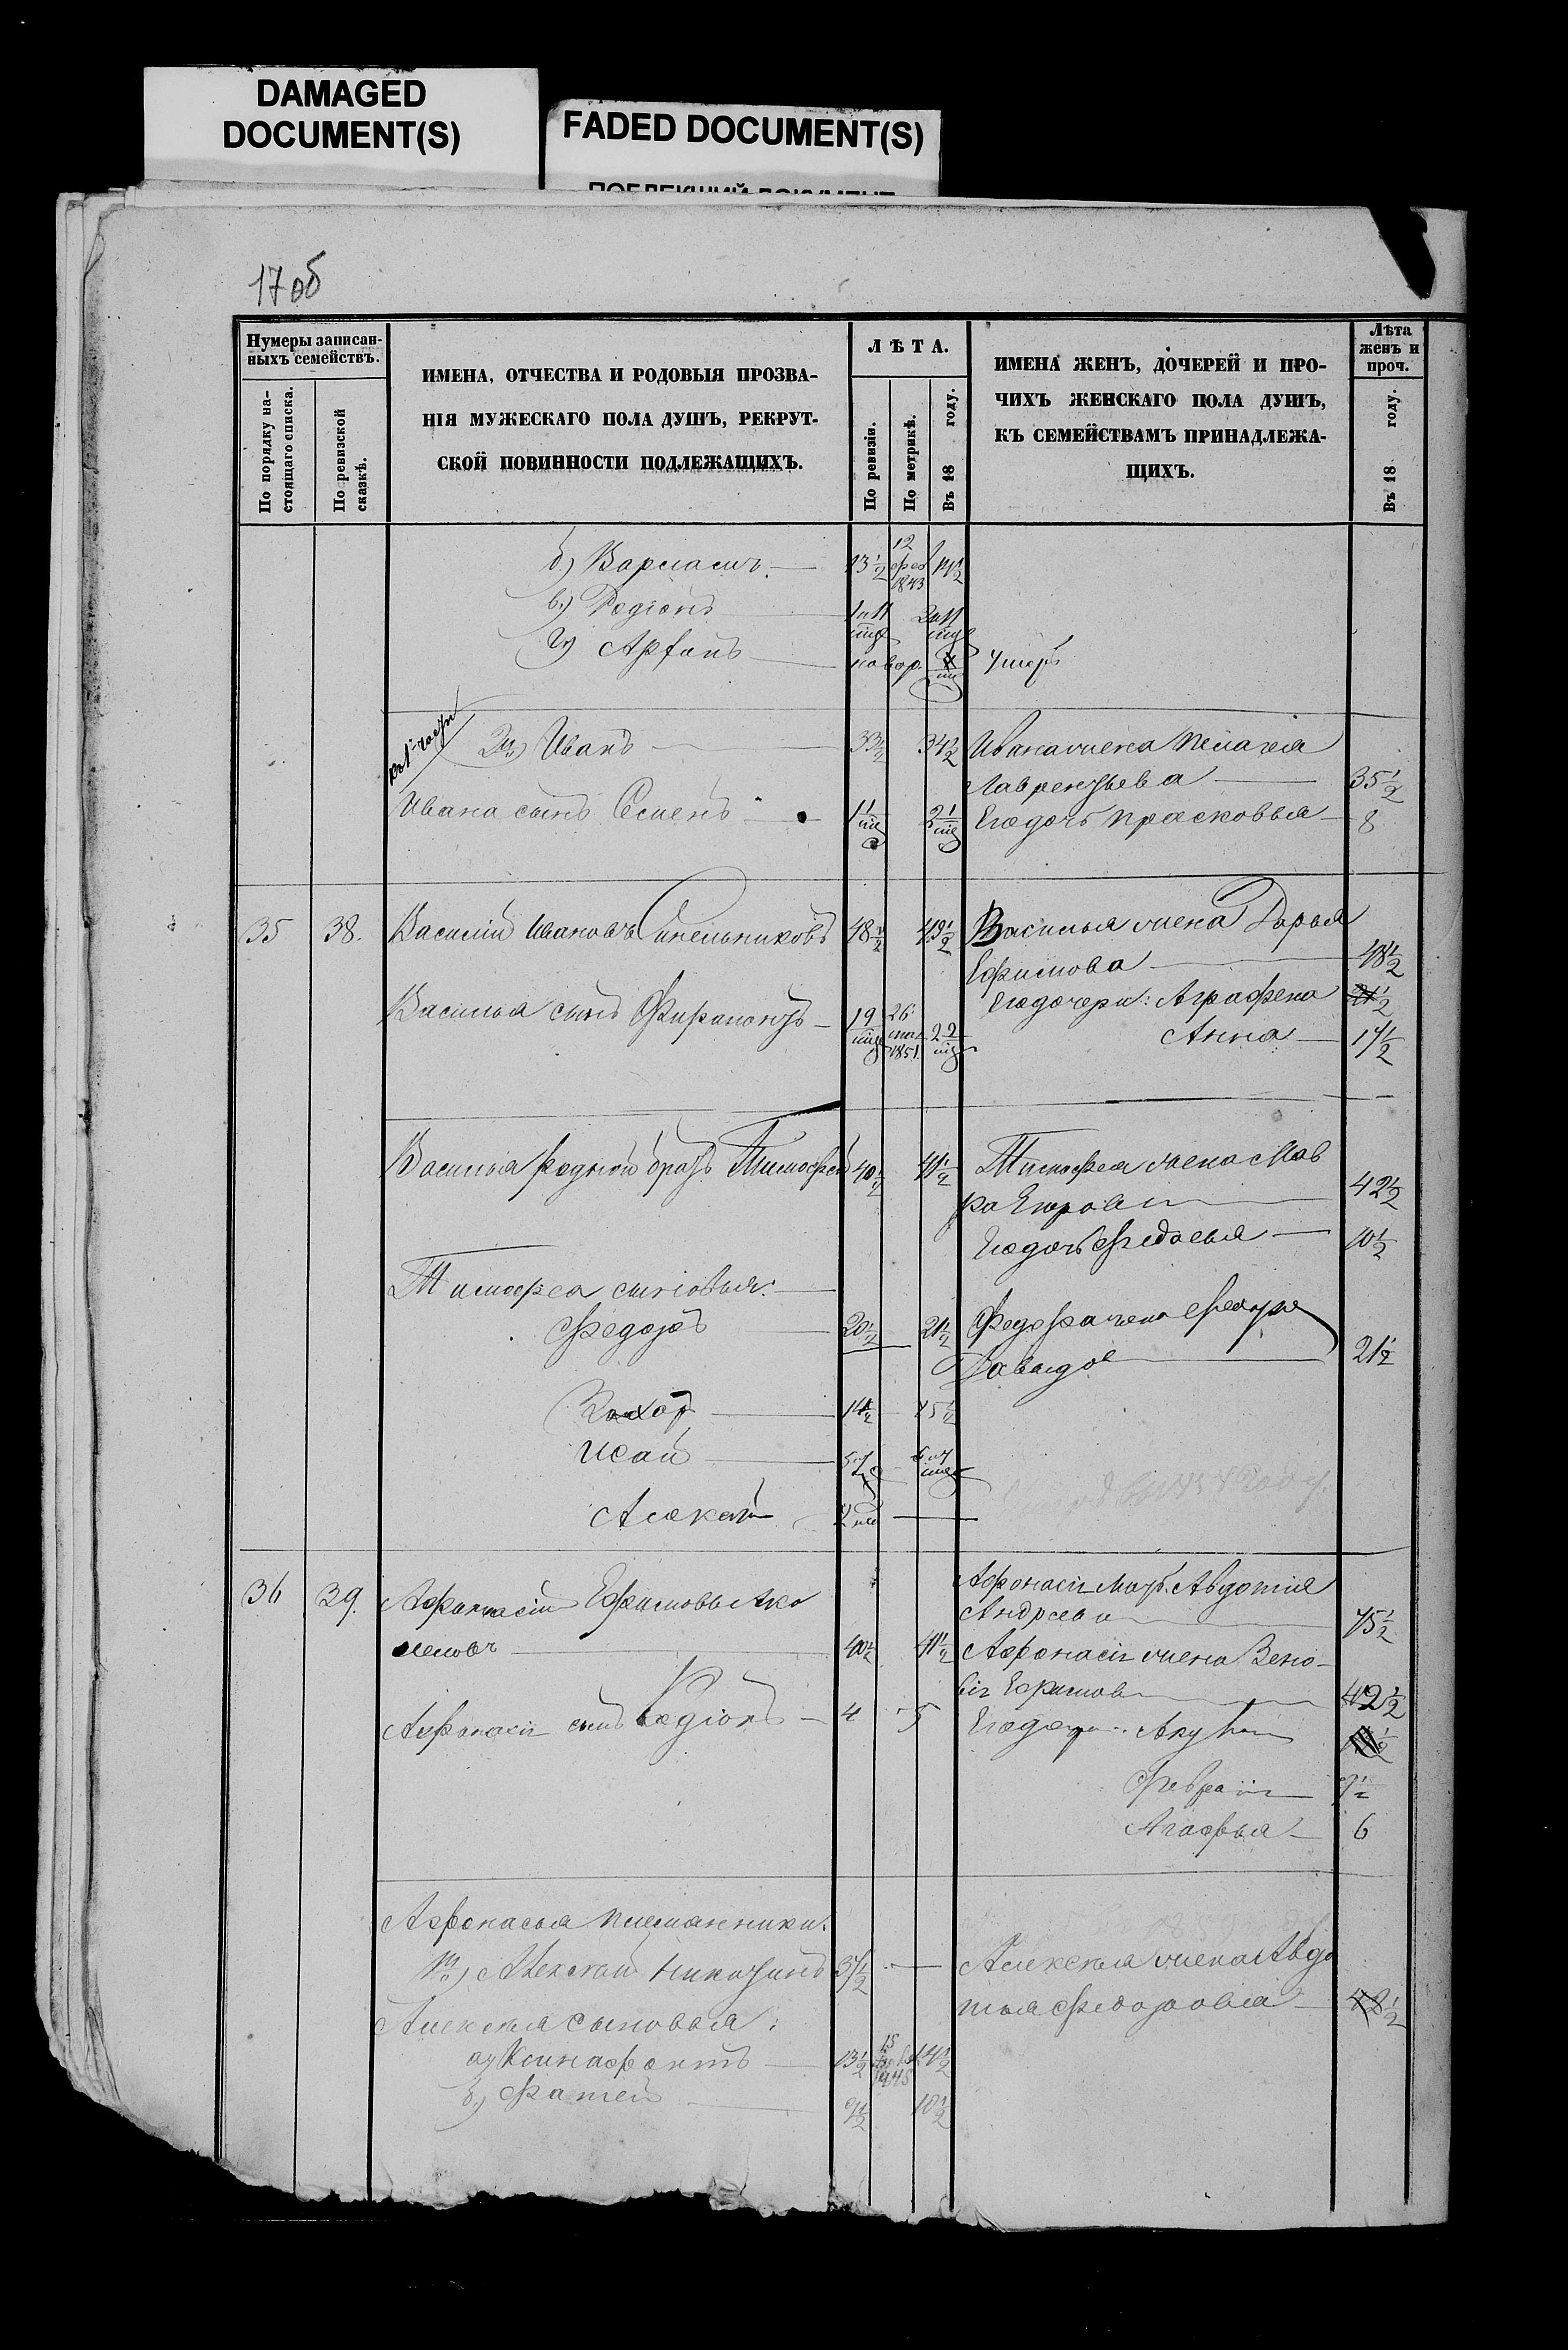 DAMAGED
DOCUMENT(S)
FADED DOCUMENT(S)
ПОБЛЕКШИЙ ДОКУМЕНТ
17 об
Нумеры записан-
ныхъ семействъ.
По порядку на-
стоящаго списка.
По ревизской
сказкѣ.
ИМЕНА, ОТЧЕСТВА И РОДОВЫЯ ПРОЗВА-
НІЯ МУЖЕСКАГО ПОЛА ДУШЪ, РЕКРУТ-
СКОЙ ПОВИННОСТИ ПОДЛЕЖАЩИХЪ.
ЛѢТА.
По ревизіи.
По метрикѣ.
Въ 18 году.
ИМЕНА ЖЕНЪ, ДОЧЕРЕЙ И ПРО-
ЧИХЪ ЖЕНСКАГО ПОЛА ДУШЪ,
КЪ СЕМЕЙСТВАМЪ ПРИНАДЛЕЖА-
ЩИХЪ.
Лѣта
женъ и
проч.
Въ 18 году.
б) 13½ 12 фев 1843 14½
в) Родіонъ
г) умеръ
2й) Иванъ 33½ 34½ Ивана жена Пелагея
Лаврентьева 35½
Ивана сынъ Семенъ Его дочь Прасковья 8
35 38. Василій Ивановъ Синельниковъ 48½ 49½ Василья жена Дарья
Ефимова 48½
Его дочери: Аграфена 21½
Василья сынъ 19 26 1851 22 Анна 17½
Василья родной братъ Тимофей 40½ 41½ Тимофея жена Мав
ра Егорова 42½
Его дочь Федосья 10½
Тимофея сыновья:
Федоръ 20½ 21½ Федора жена
Давыдо 21½
14½ 15½
Исай
Алексей
36 39. Афанасій Ефимовъ Ако
Афонасія мать Авдотія
Андреева 75½
40½ 41½ Афонасія жена Зено-
вія Ефимов 42½
Афонасія сынъ Родіонъ 4 5 Его дочери:
Февронія 9½
Агафья 6
Афонасья племянники:
1й) Алексей Никитинъ 37½ Алексея жена Авдо
тья Федоровна 48½
Алексея сыновья:
а) Ксинофонтъ 13½ 14½
б) Фатей 9½ 10½